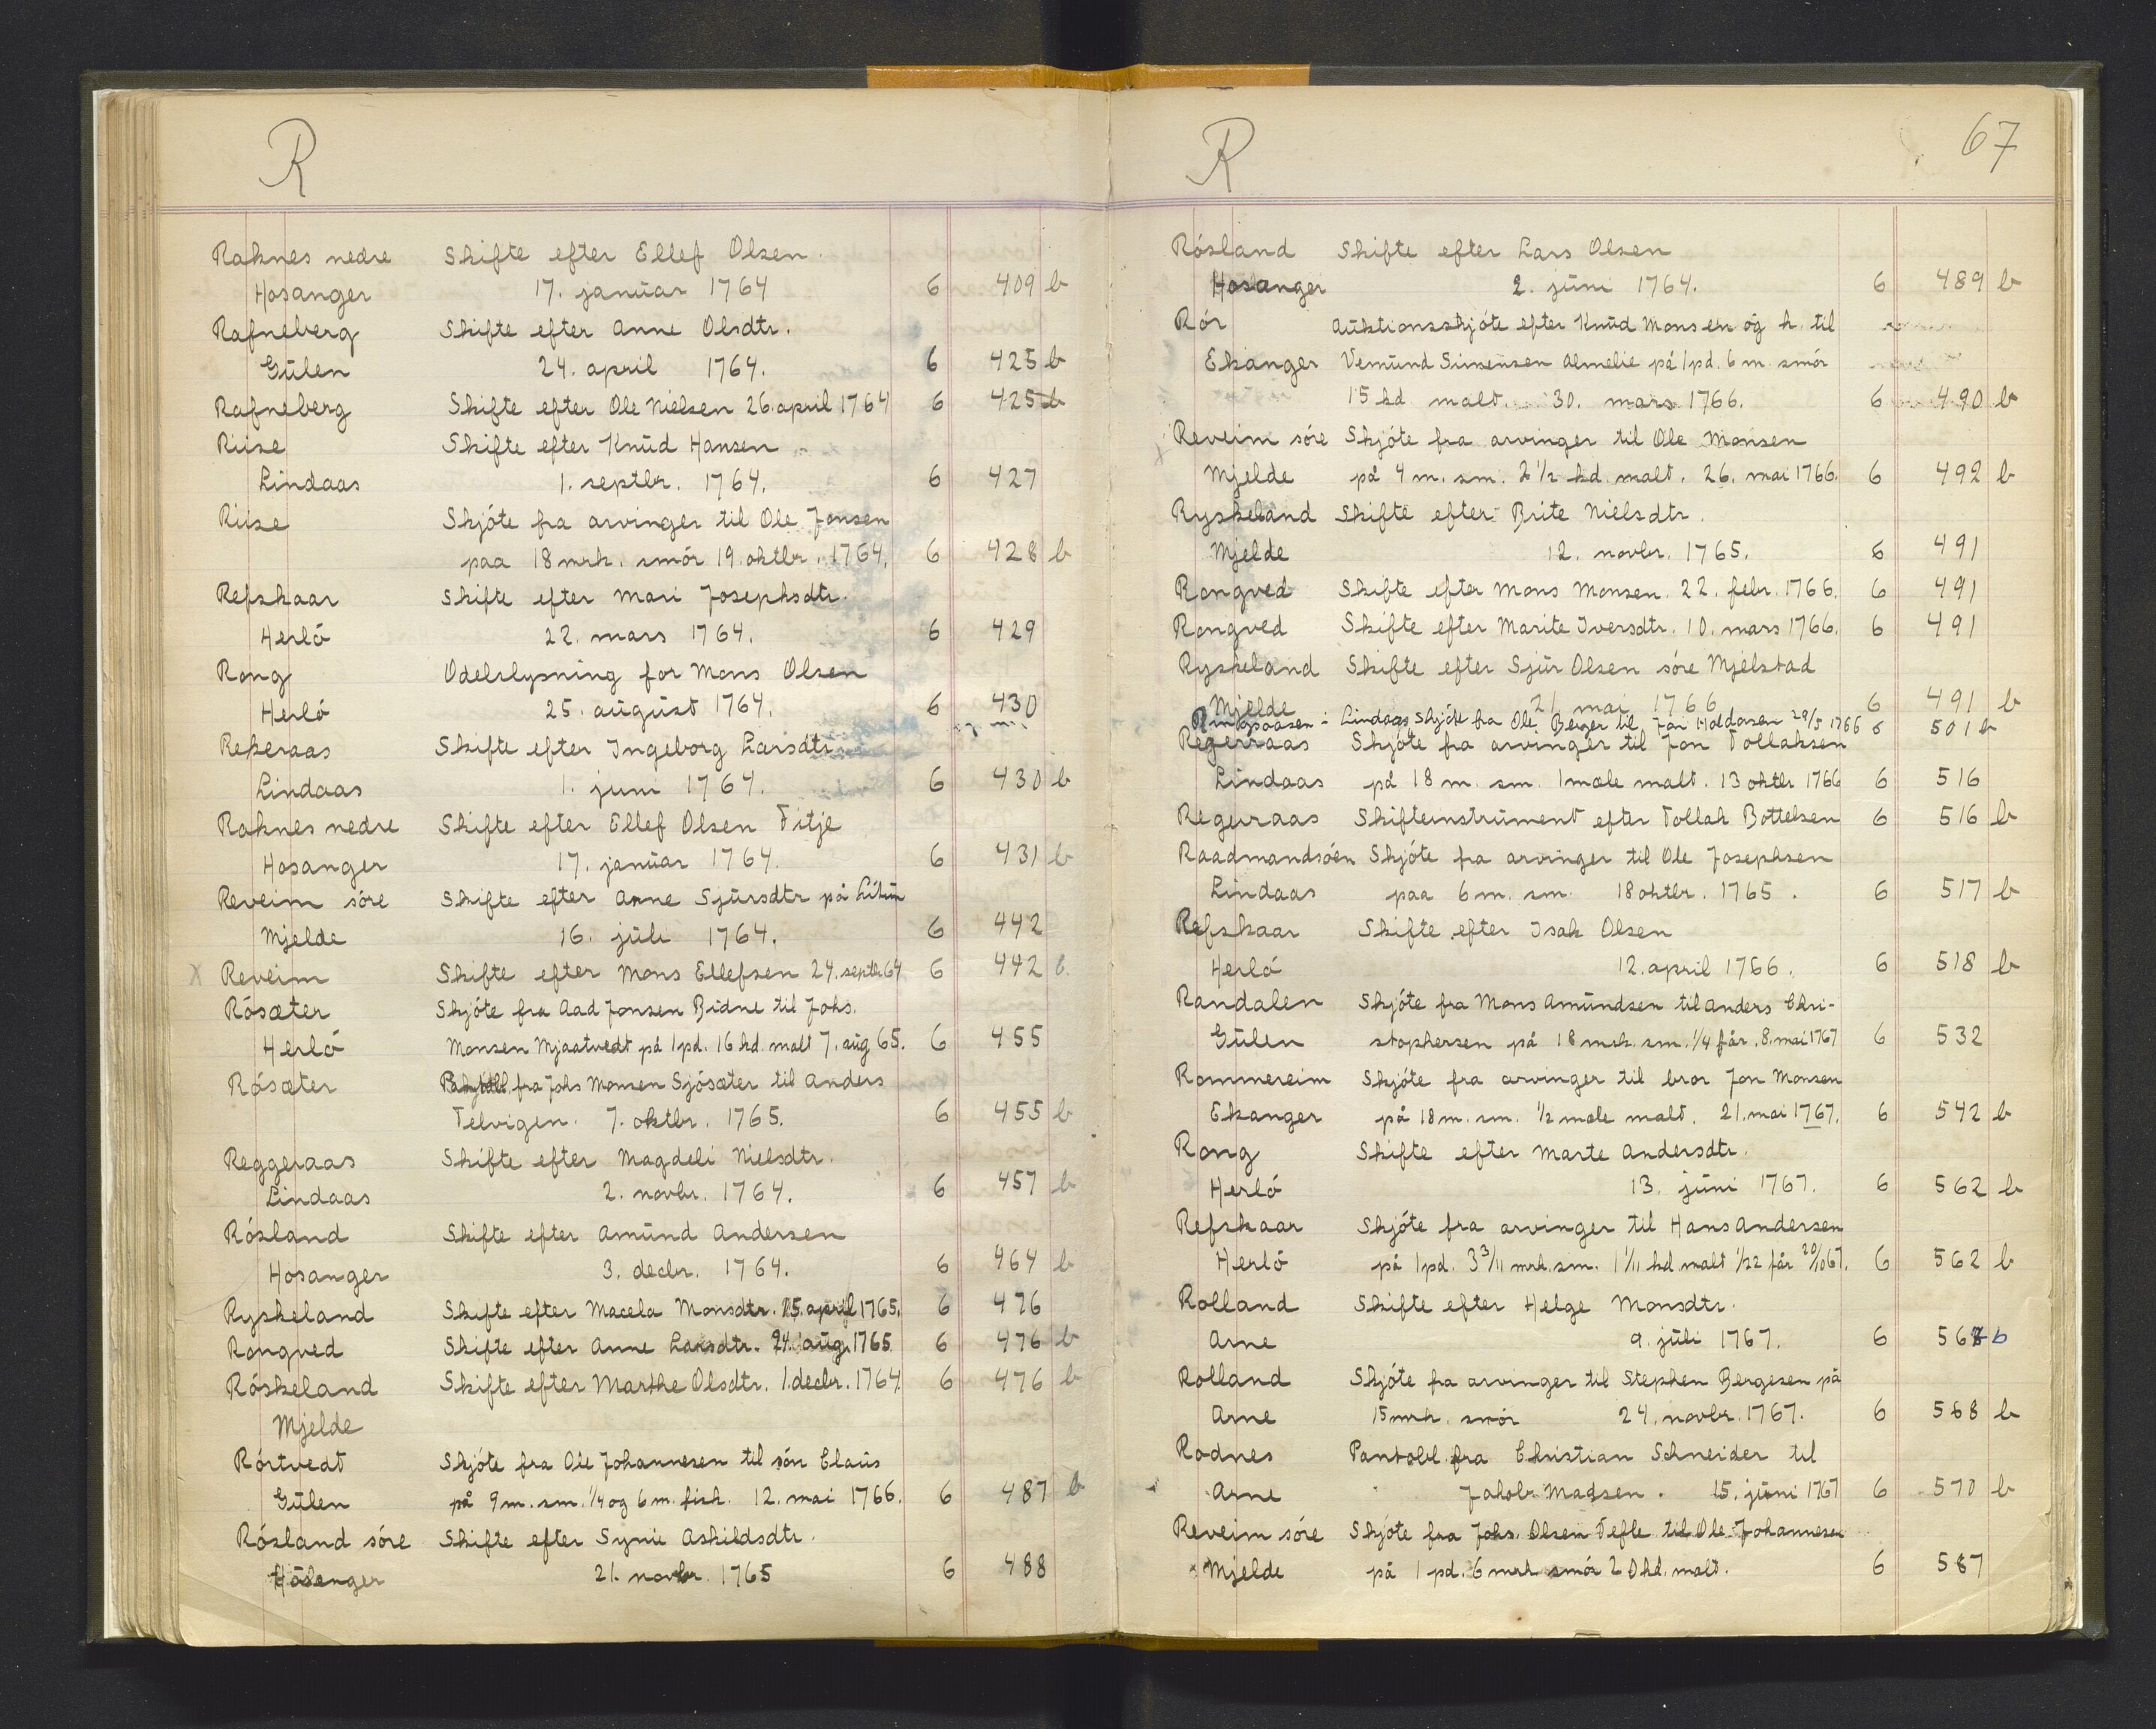 R
Raknes nedre Skifte efter Ellef Olsen.
Hosanger 17. januar 1764 6 409 b
Rafneberg Skifte efter Anne Olsdtr.
Gulen 24. april 1764. 6 425 b
Rafneberg Skifte efter Ole Nielsen 26. april 1764 6 425 b
Riise Skifte efter Knud Hansen
Lindaas 1. septbr. 1764. 6 427
Riise Skjöte fra arvinger til Ole Jonsen
paa 18 mrk. smör 19. oktbr. 1764. 6 428 b
Refskaar Skifte efter Mari Josephsdtr.
Herlö 22. mars 1764. 6 429
Rong Odelslysning for Mons Olsen
Herlö 25. august 1764. 6 430
Rekeraas Skifte efter Ingeborg Larsdtr
Lindaas 1. juni 1764. 6 430 b
Raknes nedre Skifte efter Ellef Olsen Fitje
Hosanger 17. januar 1764. 6 431 b
Reveim söre Skifte efter Anne Sjursdtr på
Mjelde 16. juli 1764. 6 442
X Reveim Skifte efter Mons Ellefsen 24. septbr 64 6 442 b.
Rösæter Skjöte fra Aad Jonsen Bidne til Johs.
Herlö Monsen Mjaatvedt på 1 pd. 16 kd. malt 7. aug 65. 6 455
Rösæter fra Johs Monsen Sjösæter til Anders
Telvigen. 7. oktbr. 1765. 6 455 b
Reggeraas Skifte efter Magdeli Nielsdtr.
Lindaas 2. novbr. 1764. 6 457 b
Rösland Skifte efter Amund Andersen
Hosanger 3. decbr. 1764. 6 464 b
Ryskeland Skifte efter Macela Monsdtr. 25. april 1765. 6 476
Rongved Skifte efter Anne Larsdtr. 24. aug. 1765 6 476 b
Röskeland Skifte efter Marthe Olsdtr. 1. decbr. 1764 6 476 b
Mjelde
Rörtvedt Skjöte fra Ole Johannesen til sön Claus
Gulen på 9 m. sm. 1/4 og 6 m. fisk. 12. mai 1766. 6 487 b
Rösland söre Skifte efter Synie Askildsdtr.
Hosanger 21. novbr. 1765 6 488
R 67
Rösland Skifte efter Lars Olsen
Hosanger 2. juni 1764. 6 489 b
Rör Auktionsskjöte efter Knud Monsen og h. til
Ekanger Vemund Simensen Almelie på 1 pd. 6 m. smör
15 kd malt. 30. mars 1766. 6 490 b
Reveim söre Skjöte fra arvinger til Ole Monsen
Mjelde på 4 m. sm. 2 1/2 kd. malt. 26. mai 1766. 6 492 b
Ryskeland Skifte efter Brite Nielsdtr.
Mjelde 12. novbr. 1765. 6 491
Rongved Skifte efter Mons Monsen. 22. febr. 1766. 6 491
Rongved Skifte efter Marite Iversdtr. 10. mars 1766. 6 491
Ryskeland Skifte efter Sjur Olsen söre Mjelstad
Mjelde 21. mai 1766 6 491 b
Ringsaasen i Lindaas Skjöte fra Ole Berger til Jan Holdorsen 29/5 1766 6 501 b
Regerraas Skjöte fra arvinger til Jon Tollaksen
Lindaas på 18 m. sm. 1 mæle malt. 13 oktbr 1766 6 516
Regerraas Skifteinstrument efter Tollak Bottelsen 6 516 b
Raadmandsöen Skjöte fra arvinger til Ole Josephsen
Lindaas paa 6 m. sm. 18 oktbr. 1765. 6 517 b
Refskaar Skifte efter Isak Olsen
Herlö 12. april 1766. 6 518 b
Randalen Skjöte fra Mons Amundsen til Anders Chri-
Gulen stophersen på 18 mrk. sm. 1/4 får. 8. mai 1767 6 532
Rommereim Skjöte fra arvinger til bror Jon Monsen
Ekanger på 18 m. sm. 1/2 mæle malt. 21. mai 1767. 6 542 b
Rong Skifte efter Marte Andersdtr.
Herlö 13. juni 1767. 6 562 b
Refskaar Skjöte fra arvinger til Hans Andersen
Herlö på 1 pd. 3 3/11 mrk. sm. 1 1/11 kd malt 1/22 får 20/10 67. 6 562 b
Rolland Skifte efter Helge Monsdtr.
Arne 9. juli 1767. 6 567 b
Rolland Skjöte fra arvinger til Stephen Bergesen på
Arne 15 mrk. smör 24. novbr. 1767. 6 568 b
Rodnes Pantobl. fra Christian Schneider til
Arne Jakob Madsen. 15. juni 1767 6 570 b
Reveim söre Skjöte fra Johs. Olsen Tefle til Ole Johannesen
Mjelde på 1 pd. 6 mrk smör 20 kd. malt. 6 587